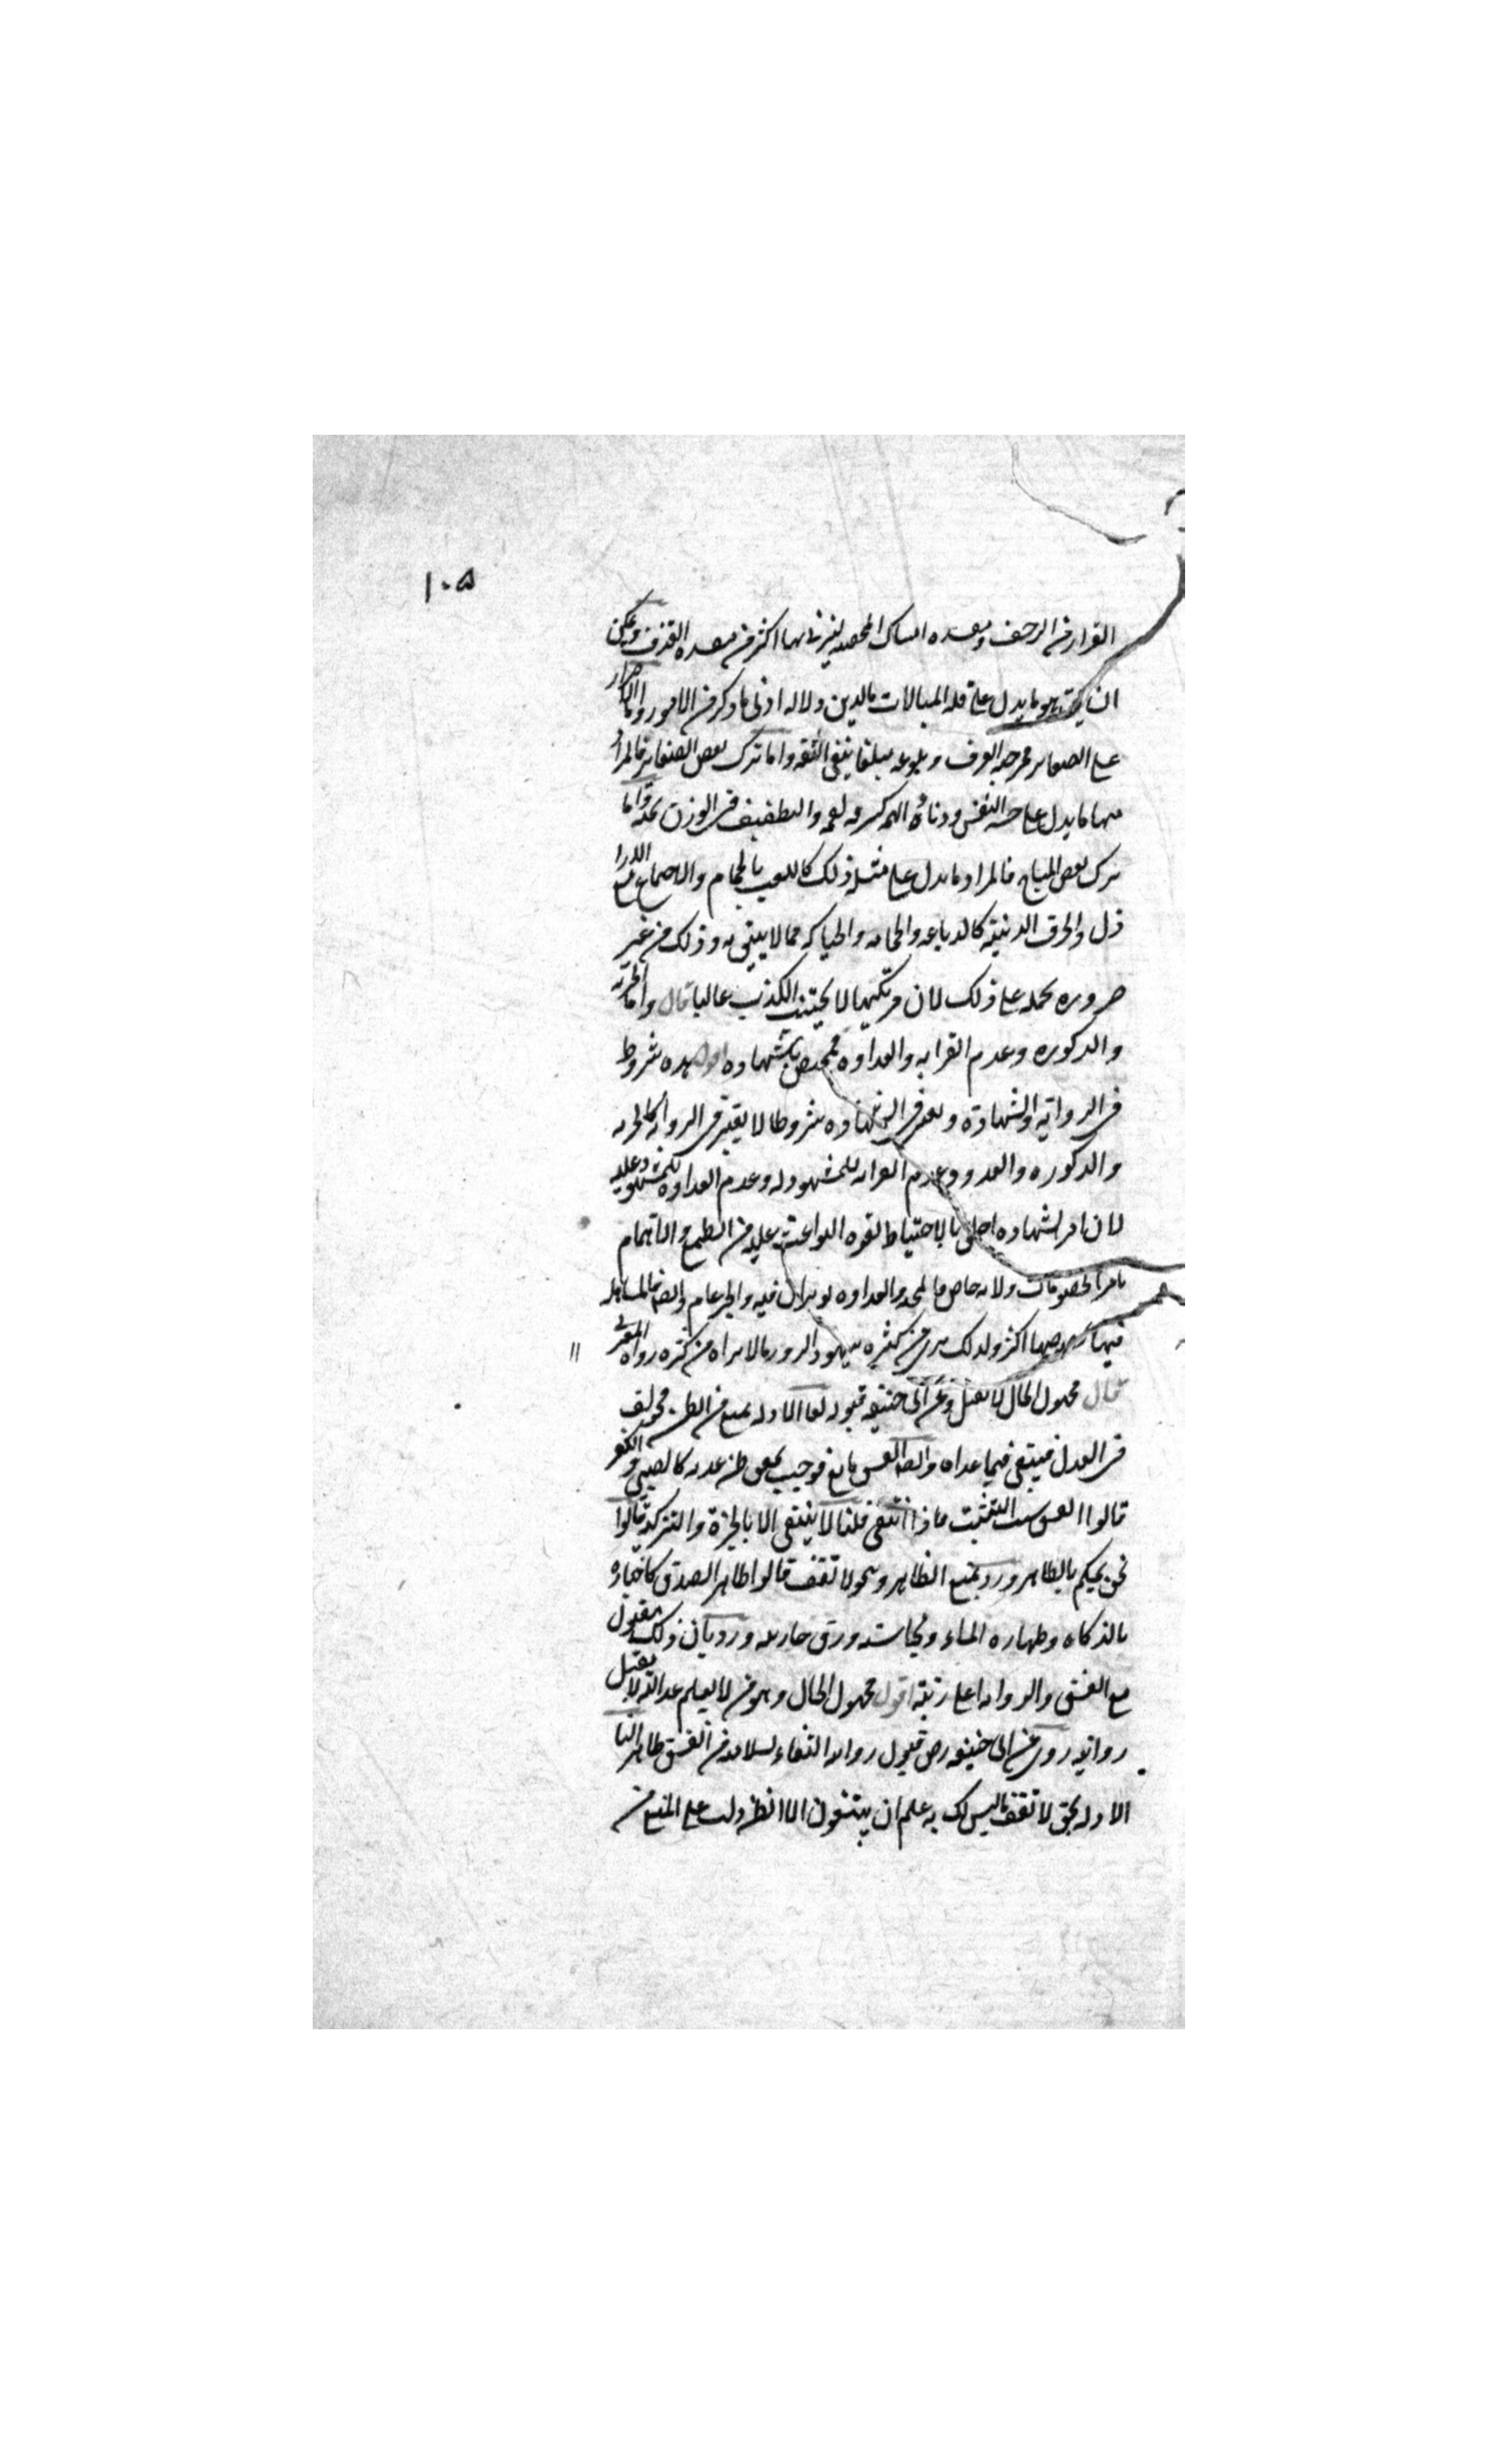 ١٠٥
الفرار من الزحف ومفسده امساك المحصنه ليزنى بها اكثر من مفسده القذف ويمكن
ان يكون هو ما يدل على قله المبالات بالدين دلاله ادنى ما ذكر من الامور واما الاصرار
على الصغاير فمرجعه العرف وبلوغه مبلغا ينفى الثقه واما ترك بعض الصغاير فالمراد
منها ما يدل على خسه النفس ودناءه الهمه كسرقه لقمه والتطفيف فى الوزن بحبه واما
ترك بعض المباح فالمراد ما يدل على مثل ذلك كاللعب بالحمام والاجتماع مع الارا
ذل والحرف الدنيه كالدباغه والحجامه والحياكه مما لا يليق به وذلك من غير
ضروره تحمله على ذلك لان مرتكبها لا يجتنب الكذب غالبا قال واما الحريه
والذكوره وعدم القرابه والعداوه فمختص بالشهاده اقول هذه شروط
فى الروايه والشهادة ويعتبر فى الشهاده شروط لا يعتبر فى الروايه كالحريه
والذكوره والعدد وعدم القرابه للمشهود له وعدم العداوه للمشهود عليه
لان امر الشهاده اجلى بالاحتياط لقوه البواعث عليه من الطمع والاهتمام
بامر الخصومات ولانه خاص فالمحبه والعداوه يؤثران فيه والخبر عام وايضا فالمساهله
فيها اكثر ولذلك ترى من كثره شهود الزور ما لا تراه من كثره رواه المفترى
قال مجهول الحال لا يقبل وعن ابى حنيفه قبوله لنا الادله تمنع من الظن فخولف
فى العدل فيبقى فيما عداه وايضا الفسق مانع فوجب تحقق ظن عدمه كالصبى والكفر
قالوا الفسق سبب التثبت فاذا انتفى قلنا لا ينتفى الا بالخبرة والتزكيه قالوا
نحن نحكم بالظاهر ورد بمنع الظاهر وبنحو ولا تقف قالوا ظاهر الصدق كاخباره
بالذكاه وطهاره الماء ونجاسته ورق جاريته ورد بان ذلك مقبول
مع الفسق والروايه اعلى رتبه اقول مجهول الحال وهو من لا يعلم عدالته لا يقبل
روايته روى عن ابى حنيفه رض قبول روايه اكتفاء بسلامته من الفسق ظاهرا لنا
الادله نحو لا تقف ما ليس لك به علم ان يتبعون الا الظن دلت على المنع من